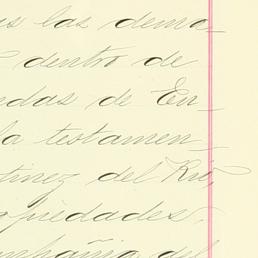 us las dema_
dentro de
ndas de En_
la testamen_
tinez del Rio,
opiedades,
mpañia del